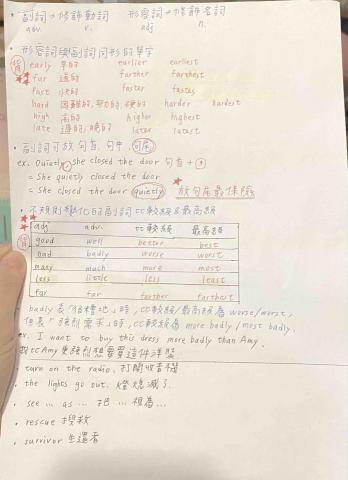 • 副詞→修飾動詞 形容詞→修飾名詞
adv. v. adj n.
• 形容詞與副詞同形的單字
early 早的 earlier earliest
far 遠的 farther farthest
fast 快的 faster fastest
hard 困難的, 努力的, 硬的 harder hardest
high 高的 higher highest
late 遲的, 晚的 later latest
• 副詞可放句首, 句中, 句尾
ex. Quietly, she closed the door 句首+,
= She quietly closed the door
= She closed the door quietly 放句尾最保險
• 不規則變化的副詞比較級&最高級
adj adv. 比較級 最高級
good well better best
bad badly worse worst
many much more most
less little less least
far far farther farthest
badly 表「很糟地」時, 比較級/最高級為 worse/worst,
但表「強烈需求」時, 比較級為 more badly/most badly.
ex. I want to buy this dress more badly than Amy.
我比Amy更強烈想要買這件洋裝
• turn on the radio. 打開收音機
• the lights go out. 燈熄滅了.
• see ... as ... 把 ... 視為 ...
• rescue 搜救
• survivor 生還者